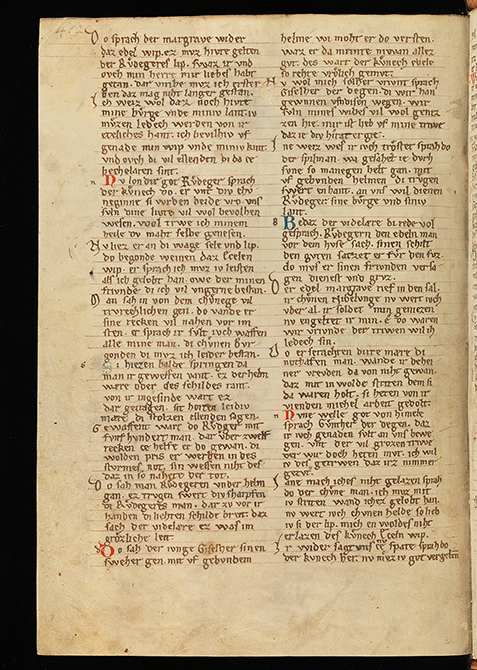 Do sprach der margrave wider
daz edel wip. ez mvz hivte gelten
der Rvdegeres lip. swaz ir vnd
ovch min herre mir liebes habt
getan. dar vmbe mvz ich ersterben
den daz mag niht langer gestan.
Ich weiz wol daz noch hivte
mine bvrge vnde miniv lant. iv
mvzen ledech werden von ir
etesliches hant. ich bevilhiv vf
genade min wip vnde miniv kint.
vnd ovch di vil ellenden di da ce
bechelaren sint.
Nv lon dir got Rvdeger sprach
der kvnech do. er vnt div chv
neginne si wrden beide vro. vns
svln dine livte vil wol bevolhen
wesen. ovch trwe ich minem
heile dv maht selbe genesen.
Do liez er an di wage sele vnd lip.
do begonde weinen daz Ecelen
wip. er sprach ich mvz iv leisten
als ich gelobt han. owe der minen
frivnde di ich vil vngerne bestan.
Man sah in von dem chvnege vil
trvrechlichen gen. do vande er
sine recken vil nahen vor im
sten. er sprach ir svlt ivch waffen
alle mine man. di chvnen bvr
gonden di mvz ich leider bestan.
Si hiezen balde springen da
man ir geweffen vant. ez der helm
ware oder des schildes rant.
von ir ingesinde wart ez
dar getragen. sit horten leidiv
mare di stolzen ellenden sagen.
Gewaffent wart do Rvdeger mit
fvnf hundert man. dar vber zwelf
recken ce helfe er do gewan. di
wolden pris erwerben in des
stvrmes not. sin wessen niht der
daz in so nahete der tot.
Do sah man Rvdegeren vnder helm
gan. ez trvgen swert div sharpfen
di Rvdegeres man. dar zv vor ir
handen di liehten schilde breit. daz
sach der videlare ez was im
grozliche leit.
Do sah der ivnge Giselher sinen
sweher gen. mit vf gebvndem
helme wi moht er do versten.
waz er da meinte niwan allez
gvt. des wart der kvnech edele
so rehte vrolich gemvt.
Nv wol mich solher vrivnt sprach
Giselher der degen. di wir han
gewnnen vf disen wegen. wir
svln mines wibes vil wol geniezen
hie. mir ist lieb vf mine trwe
daz ie div hirat erge.
Ine weiz wes ir ivch trostet sprah do
der spilman. wa gesahet ir dvrh
svne so manegen helt gan. mit
vf gebvnden helmen di trvgen
swert enhant. an vns wil dienen
Rvdeger sine bvrge vnd siniv
lant.
Bedaz der videlare di rede vol
gesprach. Rvdegern den edeln man
vor dem hvse sach. sinen schilt
den gvten satzet er fvr den fvz.
do mvs er sinen frivnden versa
gen dienest vnd grvz.
Der edel margrave rief in den sal.
ir chvnen Nibelvnge nv wert ivch
vber al. ir soldet min geniezen
nv engeltet ir min. e do waren
wir vrivnde der triwen wil ich
ledech sin.
Do erschrachten dirre mare di
nothaften man. wande ir dehei
ner vreuden da von niht gewan.
daz mit in wolde striten dem si
da waren holt. si heten von ir
vienden michel arbeit gedolt.
Nvne welle got von himele
sprach Gvnther der degen. daz
ir ivch genaden svlt an vns bewe
gen. vnt der vil grozen trwe
der wir doch heten mvt. ich wil
iv des getrwen daz irz nimmer
getvt.
Iane mach ichez niht gelazen sprah
do der chvne man. ich mvz mit
iv striten wand ichez gelobt han.
nv wert ivch chvnen helde so lieb
iv si der lip. mich en woldes niht
erlazen des kvnech Ecelen wip.
Ir wider sagt vns nv ce spate sprah do
der kvnech her. nv mvz iv got vergelten